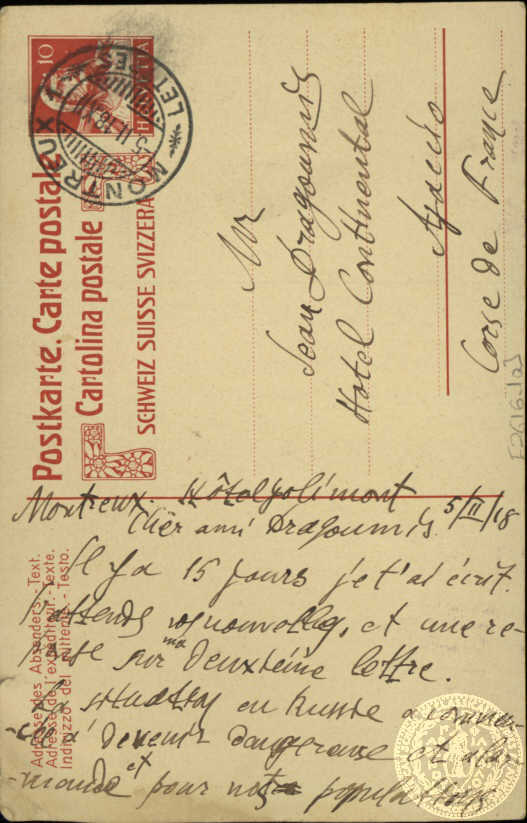 Postkarte. Carte postale
Cartolina postale
SCHWEIZ SUISSE SVIZZERA
10
HELVETIA
MONTREUX
LETTRES
5.II.18
Mr
Jean Dragoumis
Hotel Continental
Ajaccio
Corse de France
Adresse des Absenders.-Text.
Adresse de l'expéditeur.-Texte.
Indirizzo del mittente.- Testo.
Montreux. Hôtel Jolimont 5/II/18
Cher ami Dragoumis.
Il y a 15 jours je t'ai écrit.
J'attends vos nouvelles, et une re-
ponse sur ma deuxième lettre.
La situation en Russie a commen-
cé à devenir dangereuse et
-mande et pour nos populations